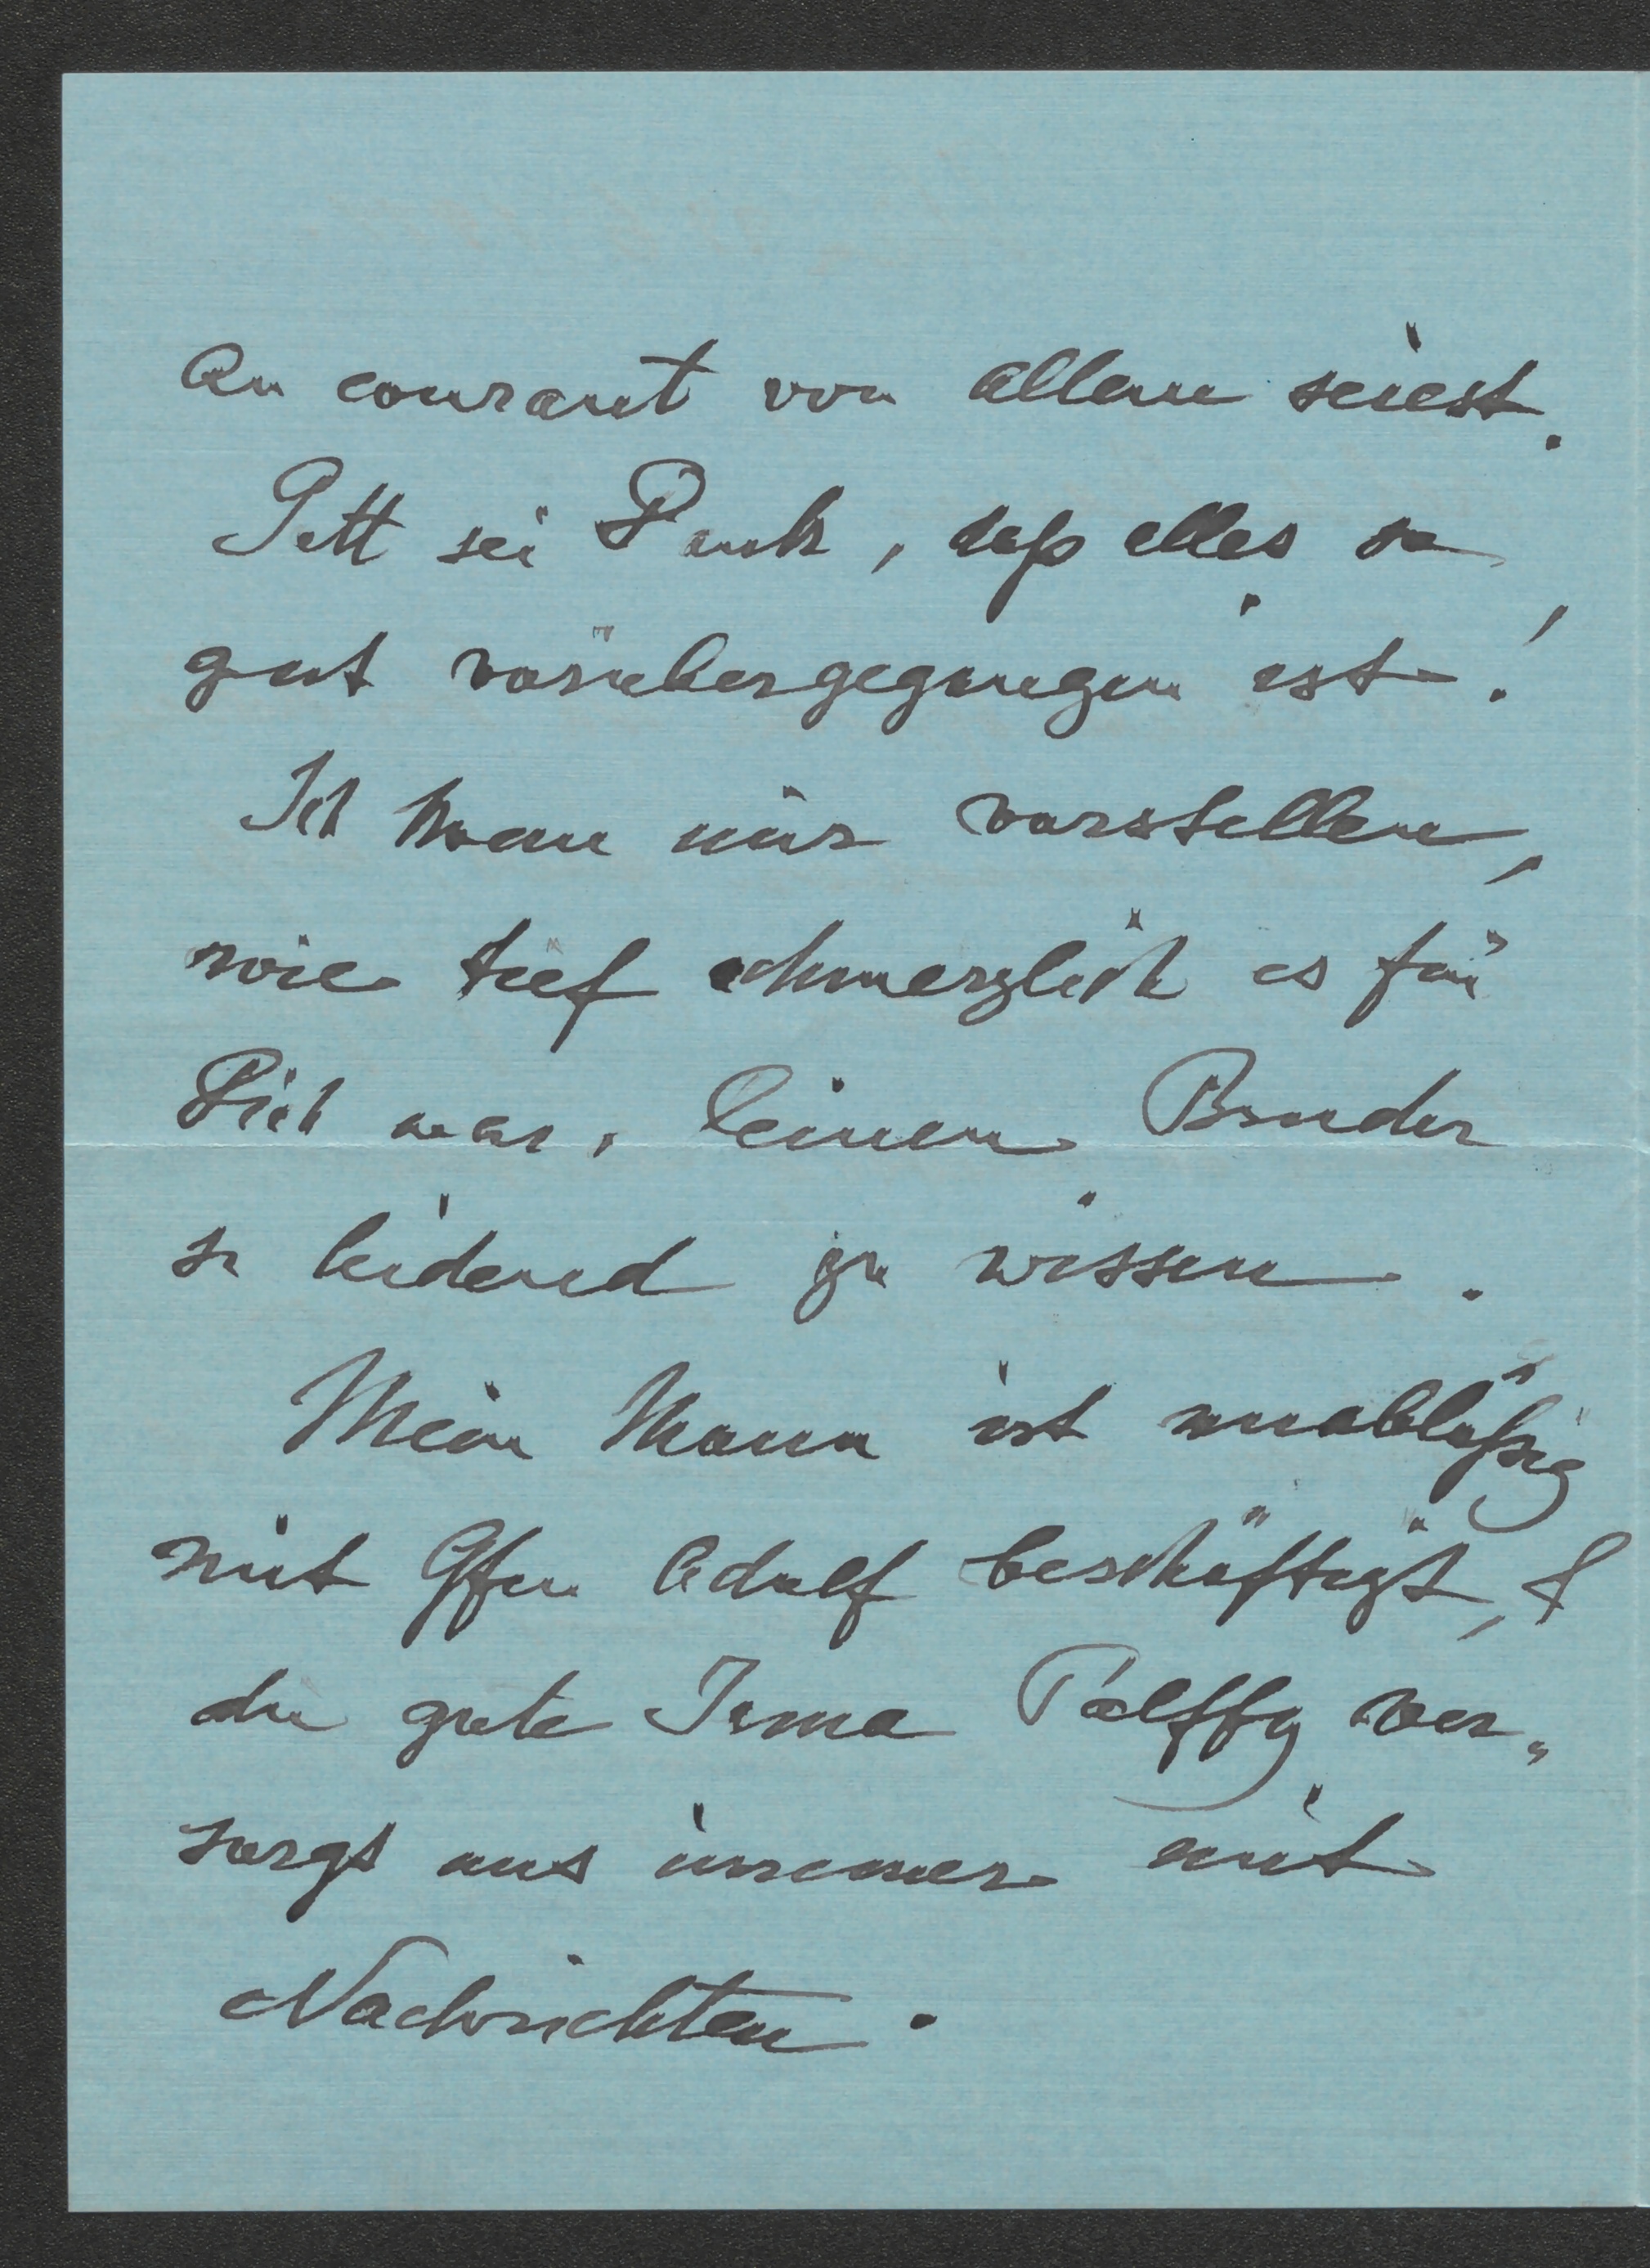 au courant von allem seiest.
Gott sei Dank, daß alles so
gut vorübergegangen ist!
Ich kann mir vorstellen,
wie tief schmerzlich es für
Dich war, Deinen Bruder
so leidend zu wissen.
Mein Mann ist unabläßig
mit Gfen Adolf beschäftigt, &
die gute Irma Pálffy ver„
sorgt uns immer mit
Nachrichten.